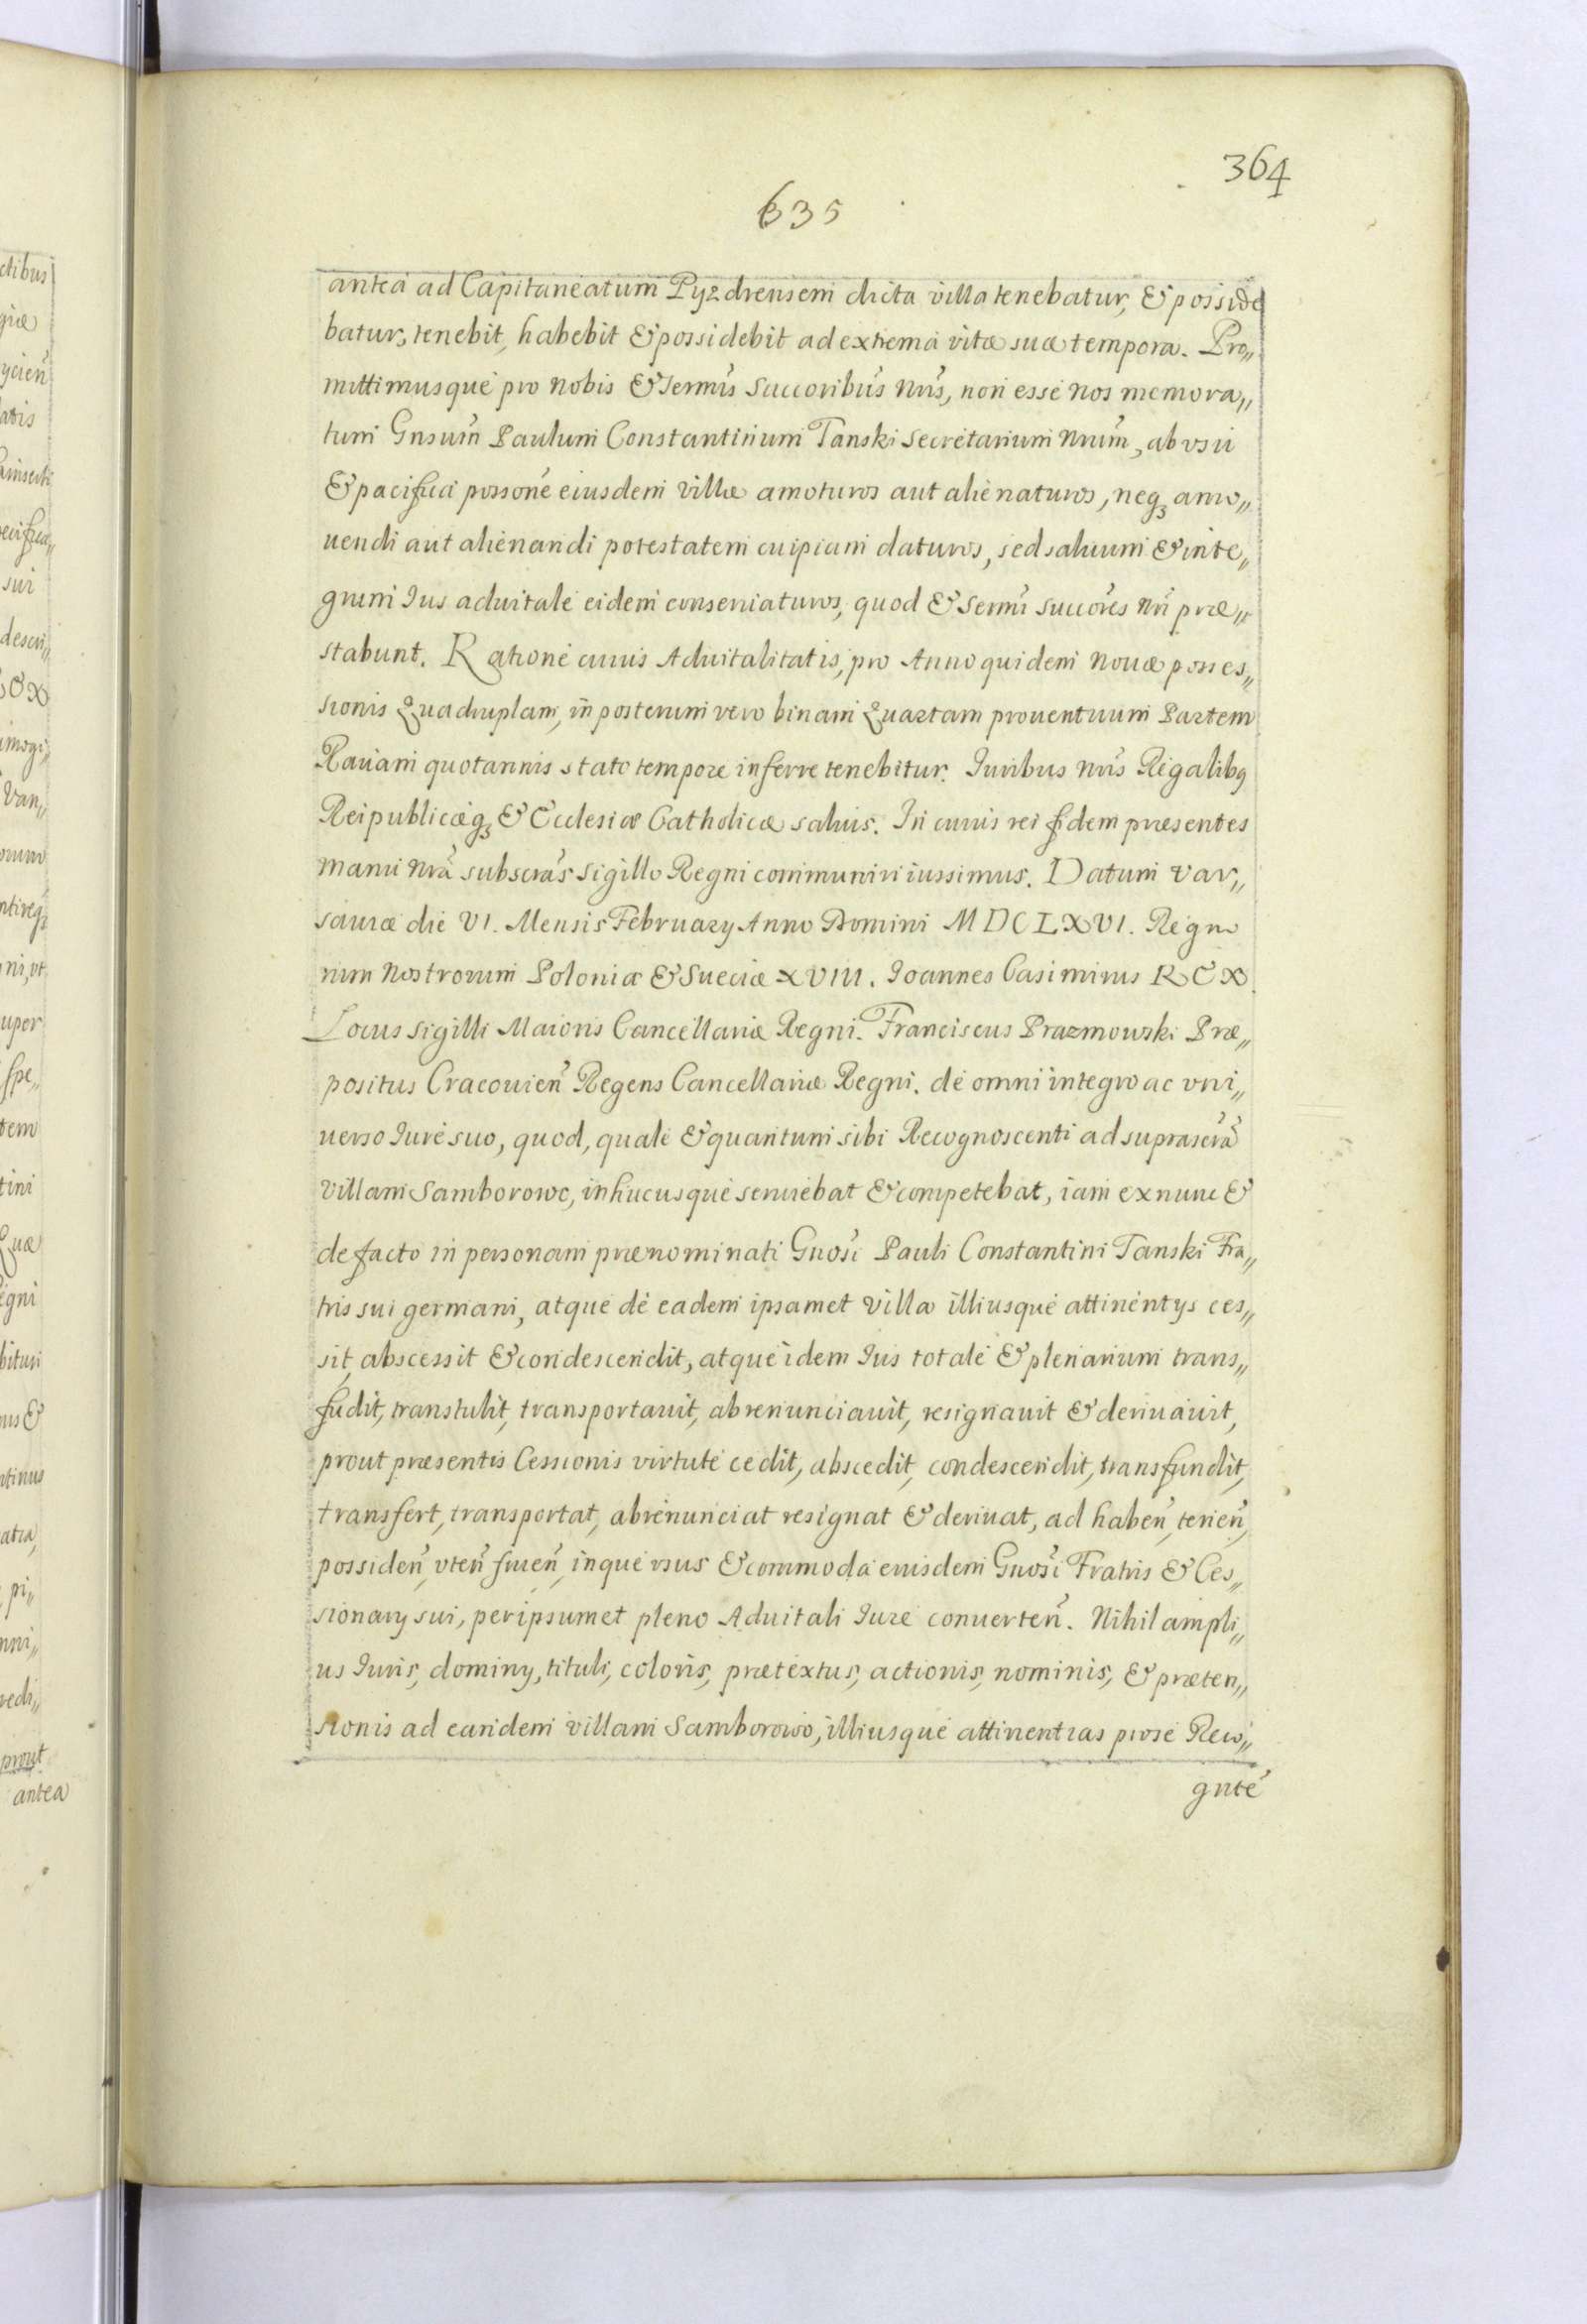 364
635
antea ad Capitaneatum Pyzdrensem dicta villa tenebatur, & posside
batur, tenebit, habebit & possidebit ad extrema vitæ suæ tempora. Pro„
mittimusque pro nobis & sermis̃ succoribus̃ nris̃, non esse nos memora„
tum Gnsum̃ Paulum Constantinum Tanski Secretarium nrum̃, ab vsu
& pacifica possone᷉ eiusdem villæ amoturos aut alienaturos, neqꝫ amo„
uendi aut alienandi potestatem cuipiam daturos, sed saluum & inte„
grum Ius aduitale eidem conseruaturos, quod & sermi᷉ succores᷉ nri᷉ præ„
stabunt. Ratione cuius Aduitalitatis, pro Anno quidem nouæ posses„
sionis Quadruplam, in posterum vero binam Quartam prouentuum Partem
Rauam quotannis stato tempore inferre tenebitur. Iuribus nris᷉ Regalibꝰ
Reipublicæqꝫ & Ecclesiæ Catholicæ saluis. In cuius rei fidem præsentes
manu nra᷉ subscras᷉ sigillo Regni communiri iussimus. Datum Var„
sauiæ die VI. Mensis February Anno Domini MDCLXVI. Regno
rum nostrorum Poloniæ & Sueciæ XVIII. Ioannes Casimirus REX.
Locus sigilli Maioris Cancellariæ Regni. Franciscus Prazmowski Præ„
positus Cracouien᷉ Regens Cancellariæ Regni. de omni integro ac vni„
uerso Iure suo, quod, quale & quantum sibi Recognoscenti ad suprascra᷉
villam Samborowo, inhucusque seruiebat & competebat, iam ex nunc &
de facto in personam prænominati Gnosi᷉ Pauli Constantini Tanski Fra„
tris sui germani, atque de eadem ipsamet villa illiusque attinentys ces„
sit, abscessit & condescendit, atque idem Ius totale & plenarium trans„
fudit, transtulit, transportauit, abrenunciauit, resignauit & deriuauit,
prout præsentis Cessionis virtute cedit, abscedit, condescendit, transfundit,
transfert, transportat, abrenunciat resignat & deriuat, ad haben᷉, tenen᷉,
possiden᷉, vten᷉ fruen᷉, inque vsus & commoda eiusdem Gnosi᷉ Fratris & Ces„
sionary sui, per ipsumet pleno Aduitali Iure conuerten᷉. Nihil ampli„
us Iuris, dominy, tituli, coloris, prætextus, actionis, nominis, & præten„
sionis ad eandem villam Samborowo, illiusque attinentias pro se Reco„
gnte᷉